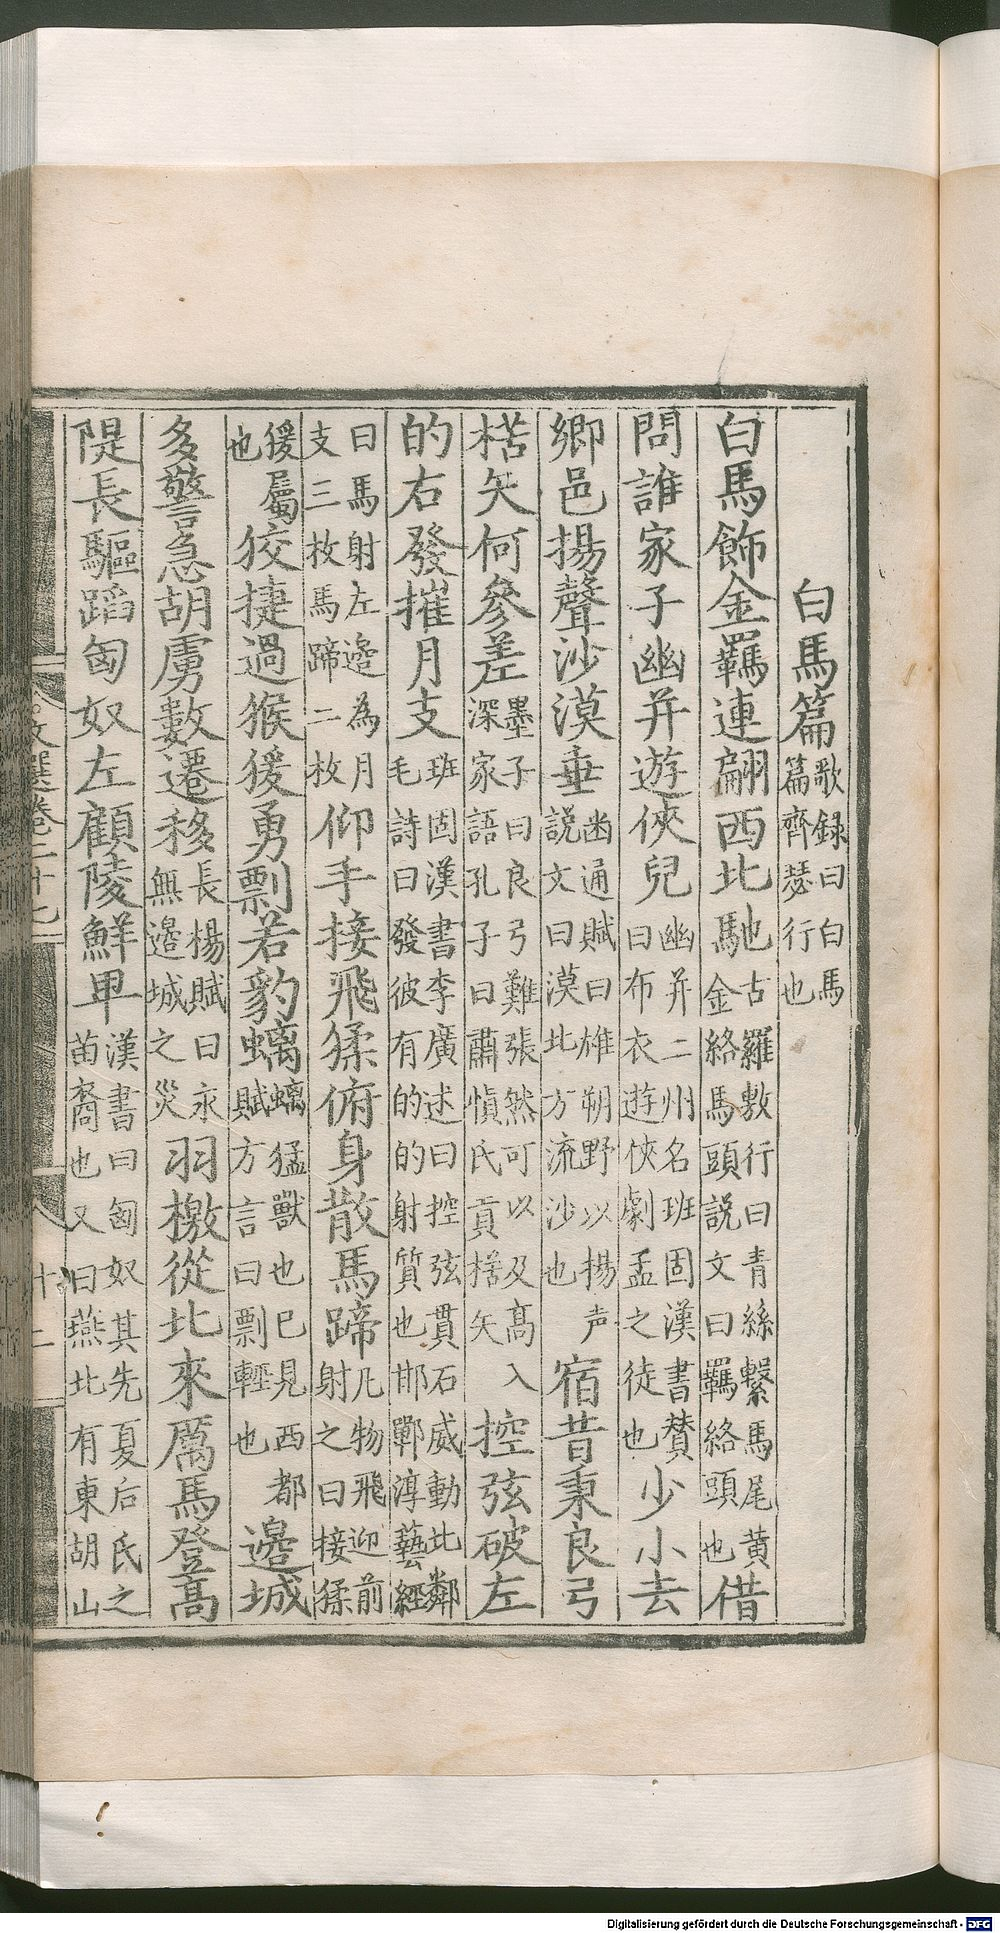 白馬篇歌録曰白馬篇齊瑟行也
白馬飾金羈連翩西北馳古羅敷行曰青絲繫馬尾黄金絡馬頭説文曰羈絡頭也借
問誰家子幽并遊俠兒幽并二州名班固漢書賛曰布衣遊俠劇孟之徒也少小去
鄉邑揚聲沙漠垂幽通賦曰雄朔野以揚声説文曰漠北方流沙也宿昔秉良弓
楛矢何參差墨子曰良弓難張然可以及髙入深家語孔子曰肅慎氏貢楛矢控弦破左
的右發摧月支班固漢書李廣述曰控弦貫石威動北鄰毛詩曰發彼有的的射質也邯鄲淳藝經
曰馬射左邉為月支三枚馬蹄二枚仰手接飛猱俯身散馬蹄凡物飛迎前射之曰接猱
猨屬也狡捷過猴猨勇剽若豹螭螭猛獸也巳見西都賦方言曰剽輕也邉城
多警急胡虜數遷移長楊賦曰永無邉城之災羽檄從北來厲馬登髙
隄長驅蹈匈奴左顧陵鮮卑漢書曰匈奴其先夏后氏之苗裔也又曰燕北有東胡山
Digitalisierung gefördert durch die Deutsche Forschungsgemeinschaft - DFG